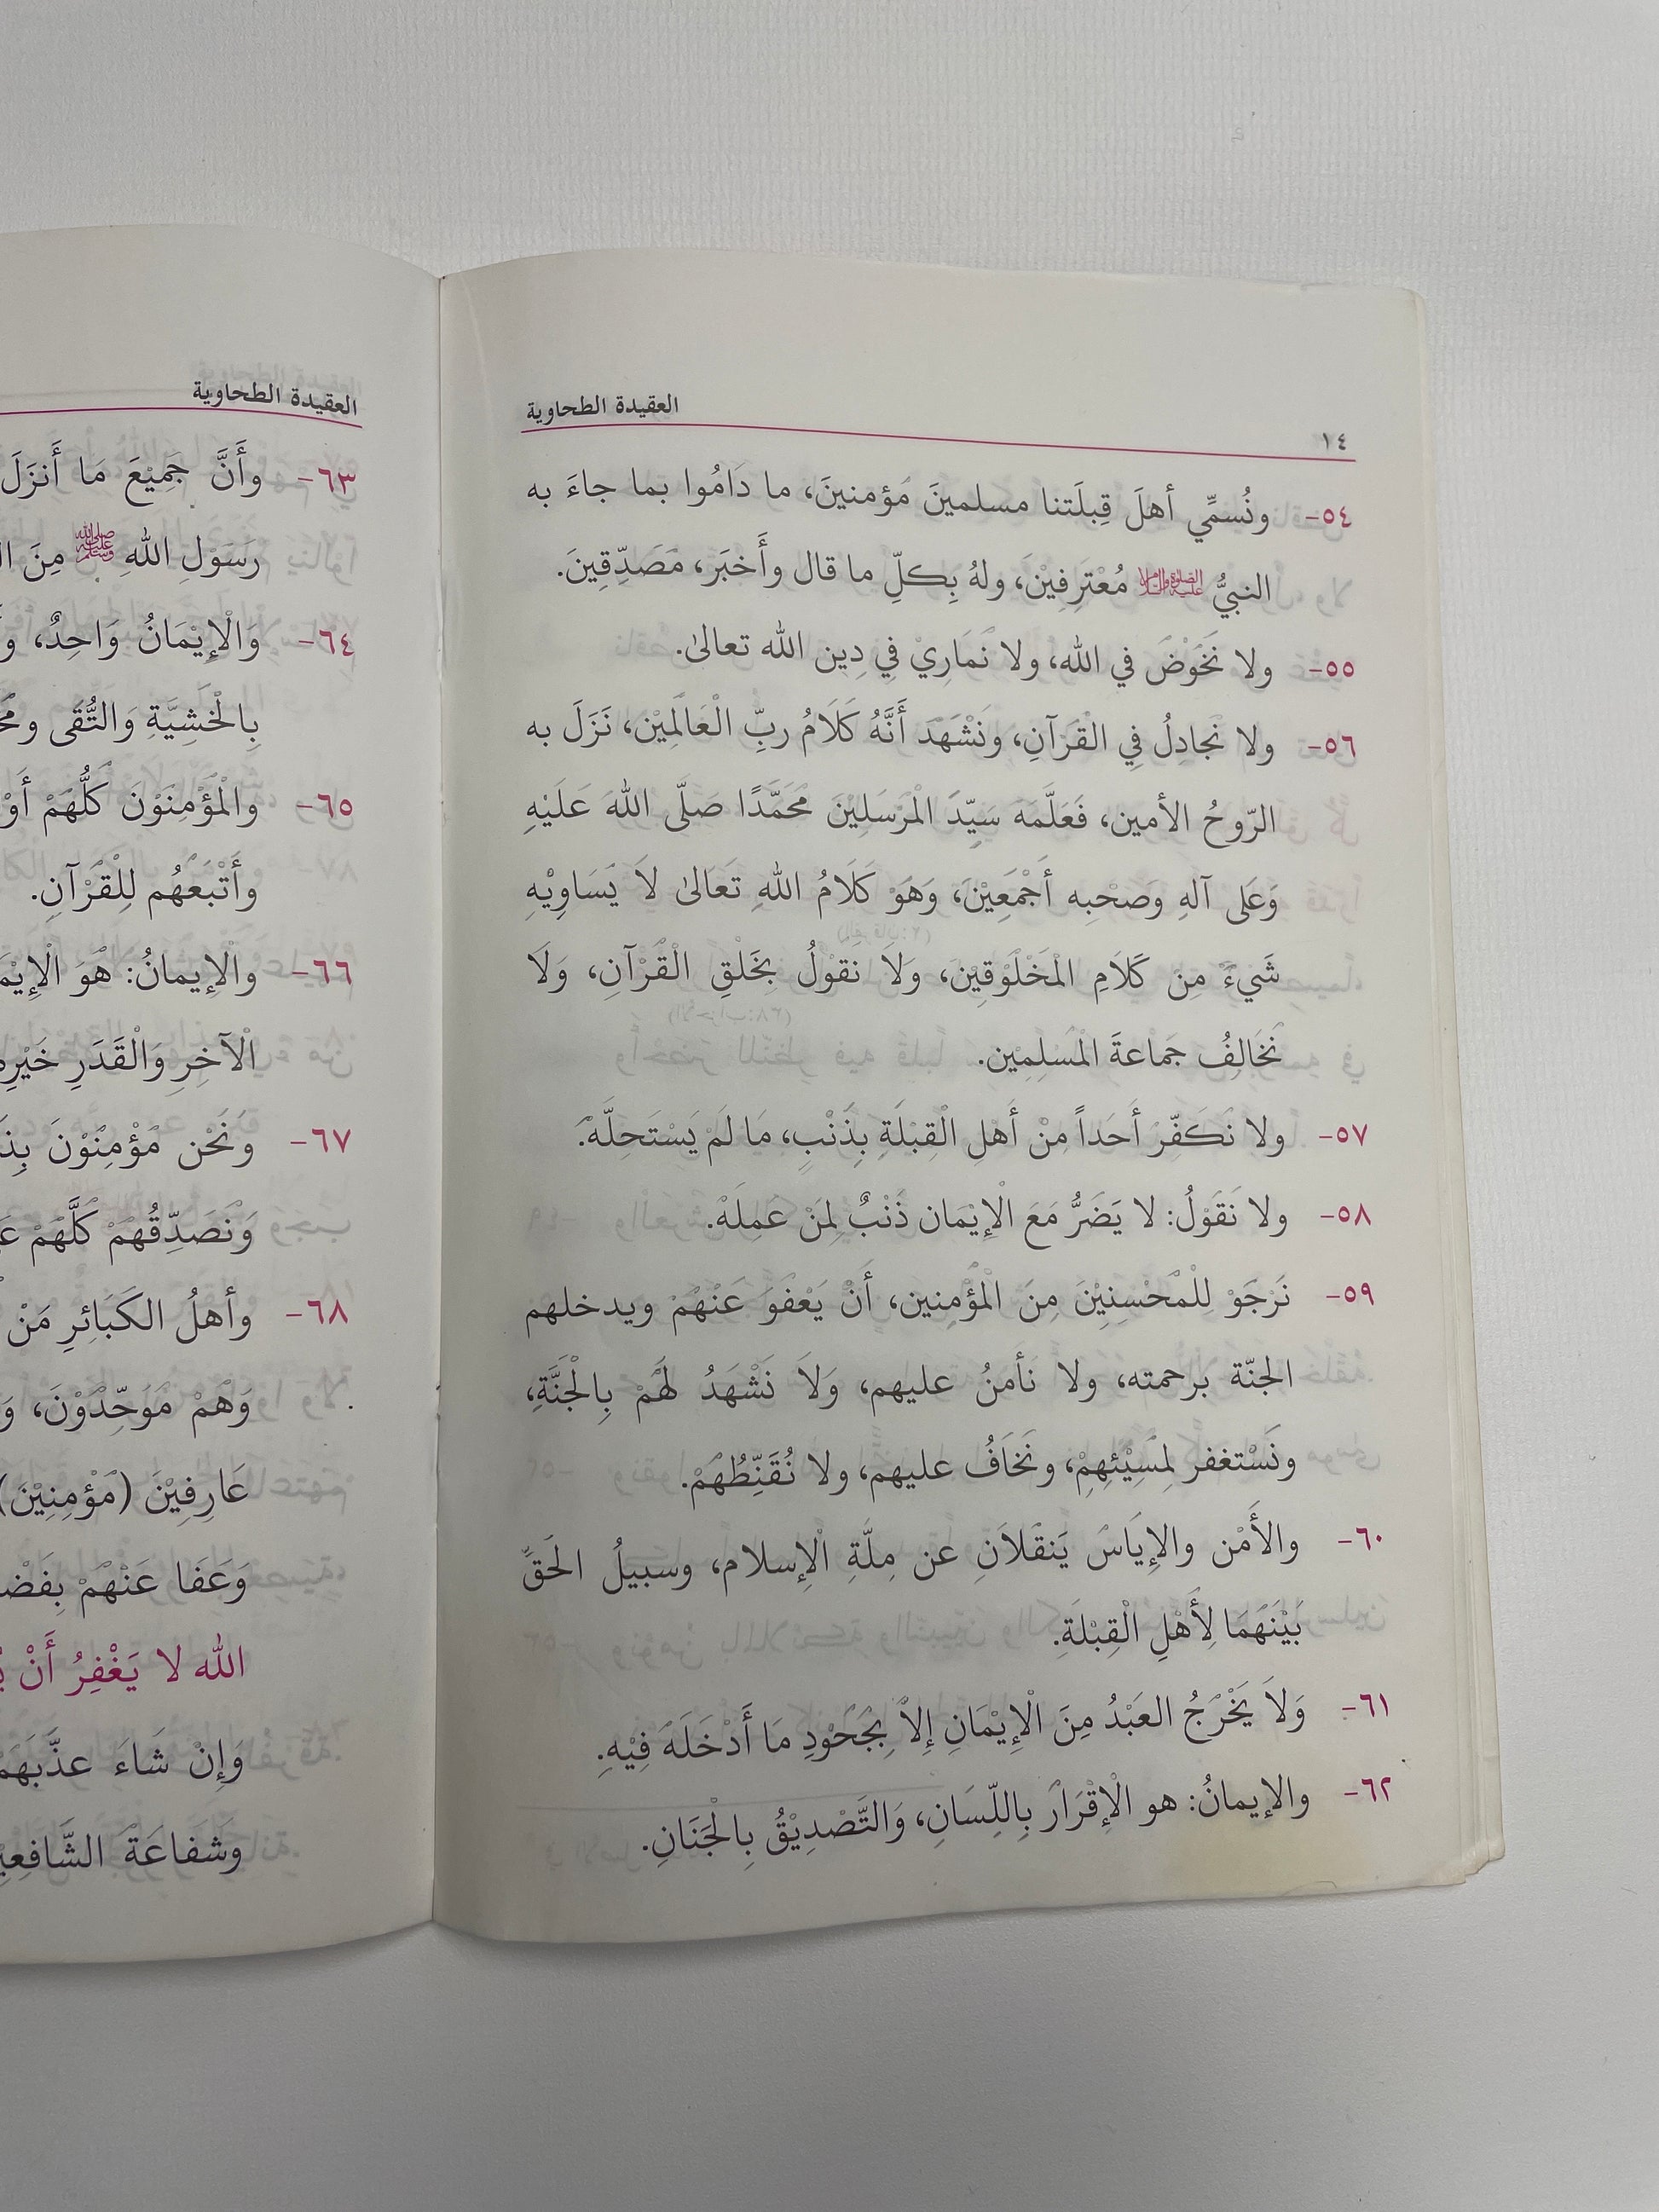 العقيدة الطحاوية
١٤
٥٤- ونُسمِّي أهلَ قِبلَتنا مسلمينَ مُؤمنينَ، ما دَامُوا بما جاءَ به
النبيُّ عليه الصلاة والسلام مُعْتَرِفيْنَ، ولهُ بِكلِّ ما قال وأَخبَر، مُصَدِّقِينَ.
٥٥- ولا نَخُوْضُ في الله، ولا نُمَارِيْ فِي دِين الله تعالىٰ.
٥٦- ولا نُجادِلُ فِي القُرَآنِ، ونَشْهَدُ أَنَّهُ كَلَامُ ربِّ الْعَالَمِيْن، نَزَلَ به
الرّوحُ الأمين، فَعَلَّمَهُ سَيِّدَ الْمُرْسَلِيْنَ مُحَمَّدًا صَلَّى اللهُ عَلَيْهِ
وَعَلى آلهِ وَصَحْبِه أَجْمَعِيْنَ، وَهُوَ كَلَامُ اللهِ تَعَالىٰ لاَ يُسَاوِيْهِ
شَيءٌ مِن كَلَامِ الْمَخْلُوْقِيْنَ، وَلاَ نَقولُ بِخَلْقِ الْقُرْآنِ، وَلَا
نُخَالِفُ جَماعةَ الْمُسلِمِيْن.
٥٧- ولا نُكَفِّرُ أَحَداً مِنْ أَهلِ الْقِبْلَةِ بِذَنْبٍ، مَا لَمْ يَسْتَحِلَّهُ.
٥٨- ولا نَقُوْلُ: لا يَضُرُّ مَعَ الْإِيْمَان ذَنْبٌ لِمَنْ عَمِلَهُ.
٥٩- نَرْجُوْ لِلْمُحْسِنِيْنَ مِنَ الْمُؤْمِنين، أَنْ يَعْفُوَ عَنْهُمْ ويدخلهم
الجنّة برحمته، ولا نأمنُ عليهم، وَلاَ نَشْهَدُ لَهُمْ بِالْجَنَّةِ،
ونَسْتغفر لِمُسِيْئِهِمْ، ونَخَافُ عليهم، ولا نُقَنِّطُهُمْ.
٦٠- والأَمْن والإِيَاسُ يَنقُلاَنِ عن مِلَّةِ الْإسلام، وسبيلُ الحَقِّ
بَيْنَهُمَا لِأَهْلِ الْقِبْلَةِ.
٦١- وَلاَ يَخْرُجُ العَبْدُ مِنَ الْإِيْمَانِ إِلاَّ بِجُحُوْدِ مَا أَدْخَلَهُ فِيْهِ.
٦٢- والإيمانُ: هو الْإِقْرَارُ بِاللِّسَانِ، وَالتَّصْدِيْقُ بِالْجَنَانِ.
العقيدة الطحاوية
٦٣- وأَنَّ جَمِيْعَ مَا أَنزَلَ
رَسُوْلِ اللهِ ﷺ مِنَ
٦٤- وَالْإِيْمَانُ وَاحِدٌ،
بِالْخَشِيَّةِ وَالتُّقَى
٦٥- والْمُؤْمِنُوْنَ كُلُّهُمْ
وأَتْبَعُهُم لِلْقُرْآنِ.
٦٦- والْإيمانُ: هُوَ
الْآخِرِ وَالْقَدَرِ
٦٧- ونَحْن مُؤْمِنُوْنَ
وَنُصَدِّقُهُمْ كُلَّهُمْ
٦٨- وأهلُ الكَبَائِرِ مَنْ
وَهُمْ مُوَحِّدُوْنَ،
عَارِفِيْنَ (مُؤْمِنِيْنَ)
وَعَفَا عَنْهُمْ
الله لا يَغْفِرُ أَنْ
وَإِنْ شَاءَ عذَّبَهُمْ
وشَفاعَة